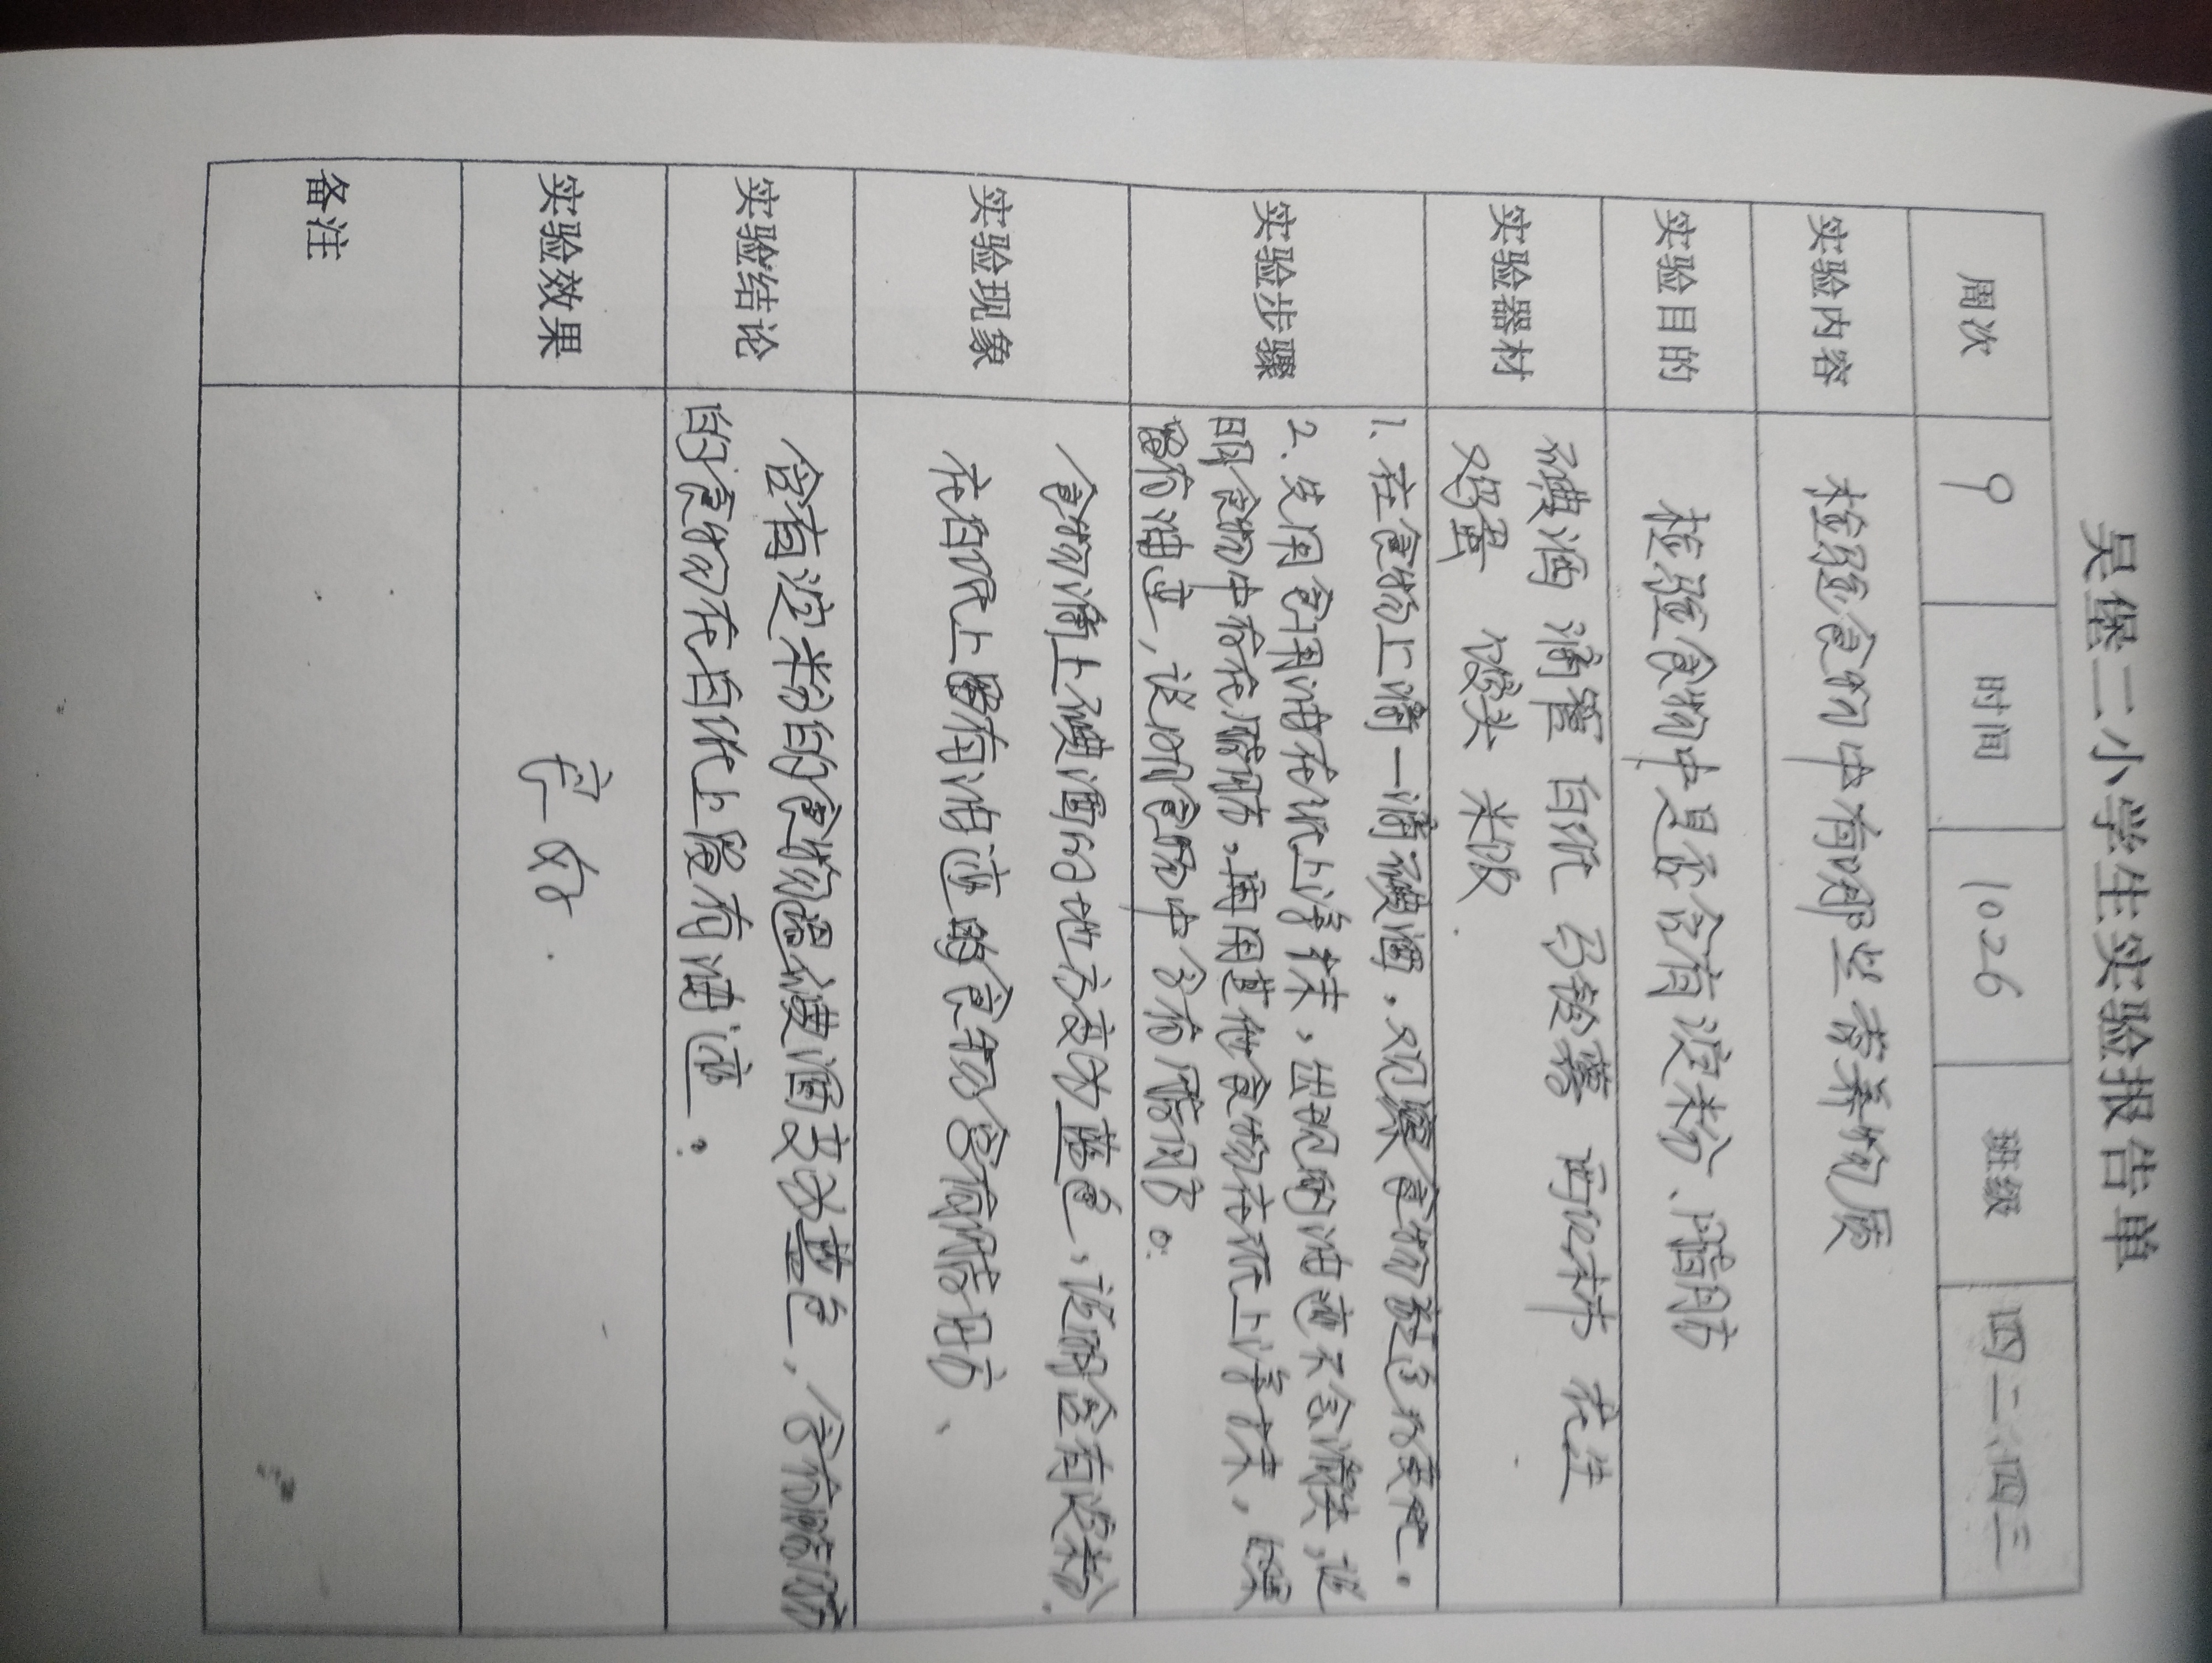 吴堡二小学生实验报告单
周次 9 时间 1026 班级 四二、四三
实验内容 检验食物中有哪些营养物质
实验目的 检验食物中是否含有淀粉、脂肪
实验器材 碘酒 滴管 白纸 马铃薯 西红柿 花生
鸡蛋 馒头 米饭
实验步骤 1. 在食物上滴一滴碘酒,观察食物起的变化。
2. 先用食用油在纸上涂抹,出现的油迹不会消失,证
明食物中存在脂肪。再用其他食物在纸上涂抹,如果
留有油迹,说明食物中含有脂肪。
实验现象 食物滴上碘酒的地方变为蓝色,说明含有淀粉.
在白纸上留有油迹的食物含有脂肪、
实验结论 含有淀粉的食物遇碘酒变为蓝色,含有脂肪
的食物在白纸上留有油迹。
实验效果 良好
备注